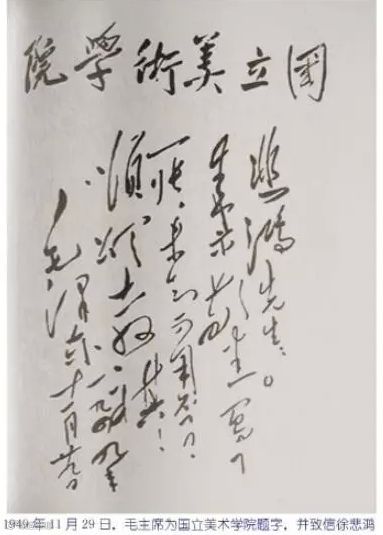 国立美術學院
悲鴻先生：
来示敬悉。写了
一张，未知可用否？
顺颂
教祺！
毛澤东
十一月廿九日
1949年11月29日，毛主席为国立美术学院题字，并致信徐悲鸿